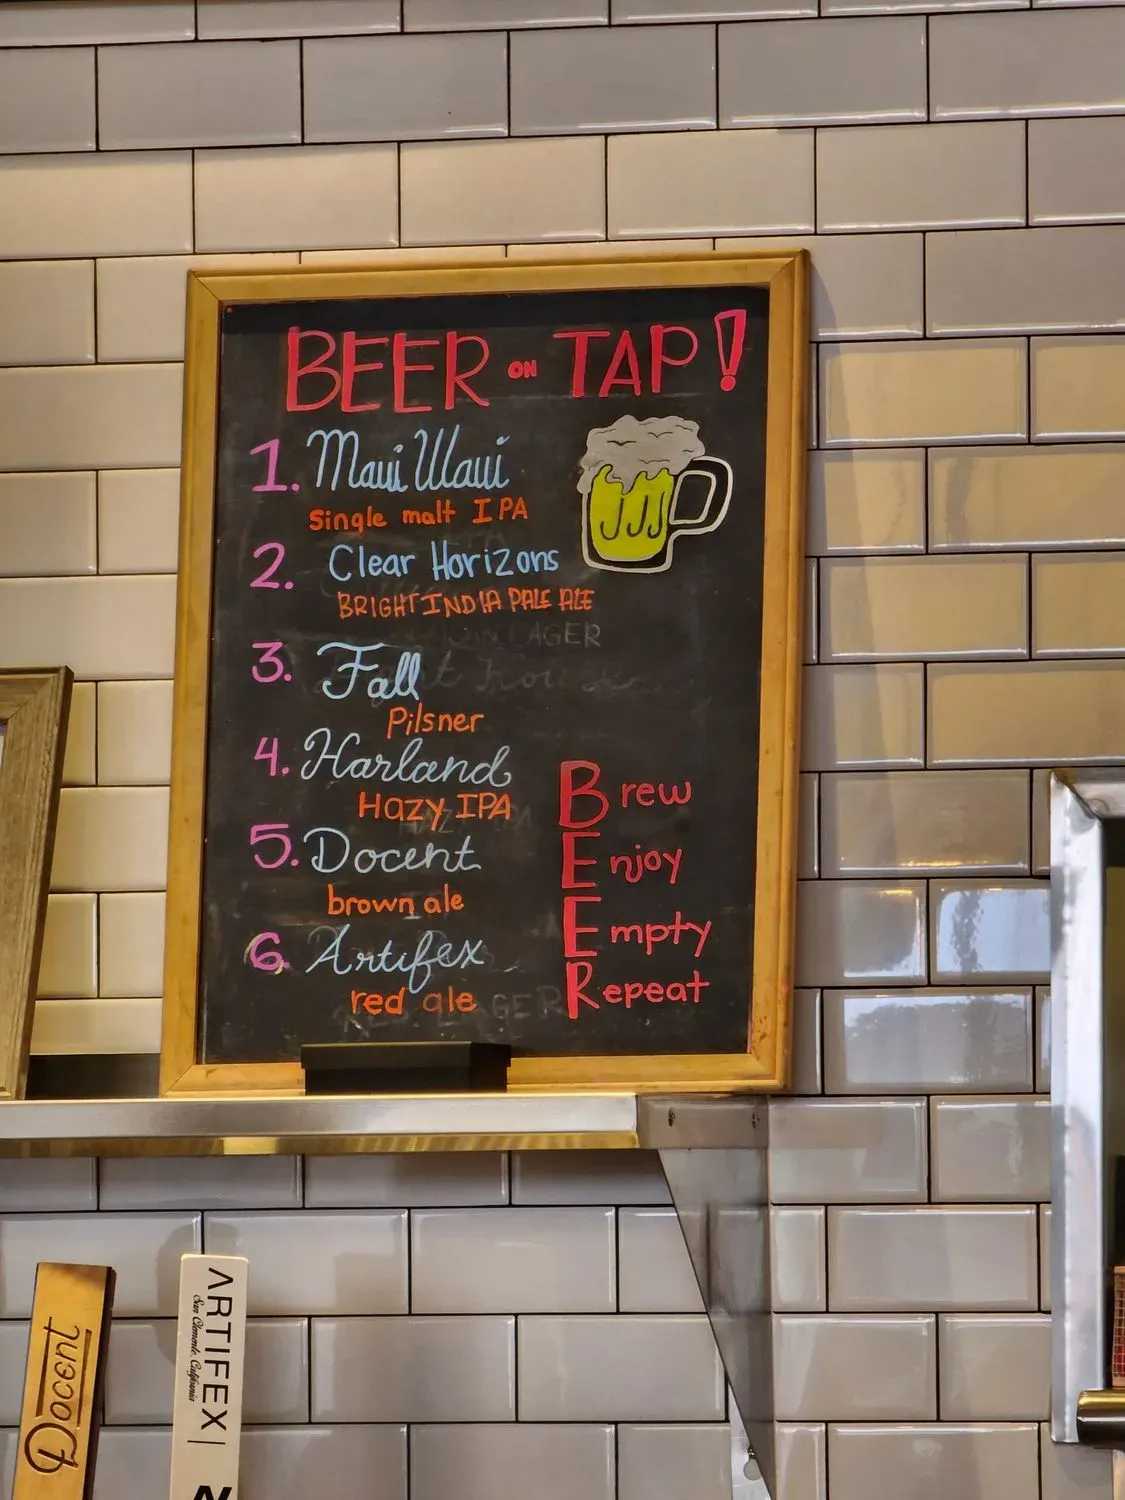 BEER ON TAP!
1. Maui Waui
single malt IPA
2. Clear Horizons
BRIGHT INDIA PALE ALE
LAGER
3. Fall
Pilsner
4. Harland
Hazy IPA
5. Docent
brown ale
6. Artifex
red ale
Brew
Enjoy
Empty
Repeat
Docent
ARTIFEX
San Clemente, California